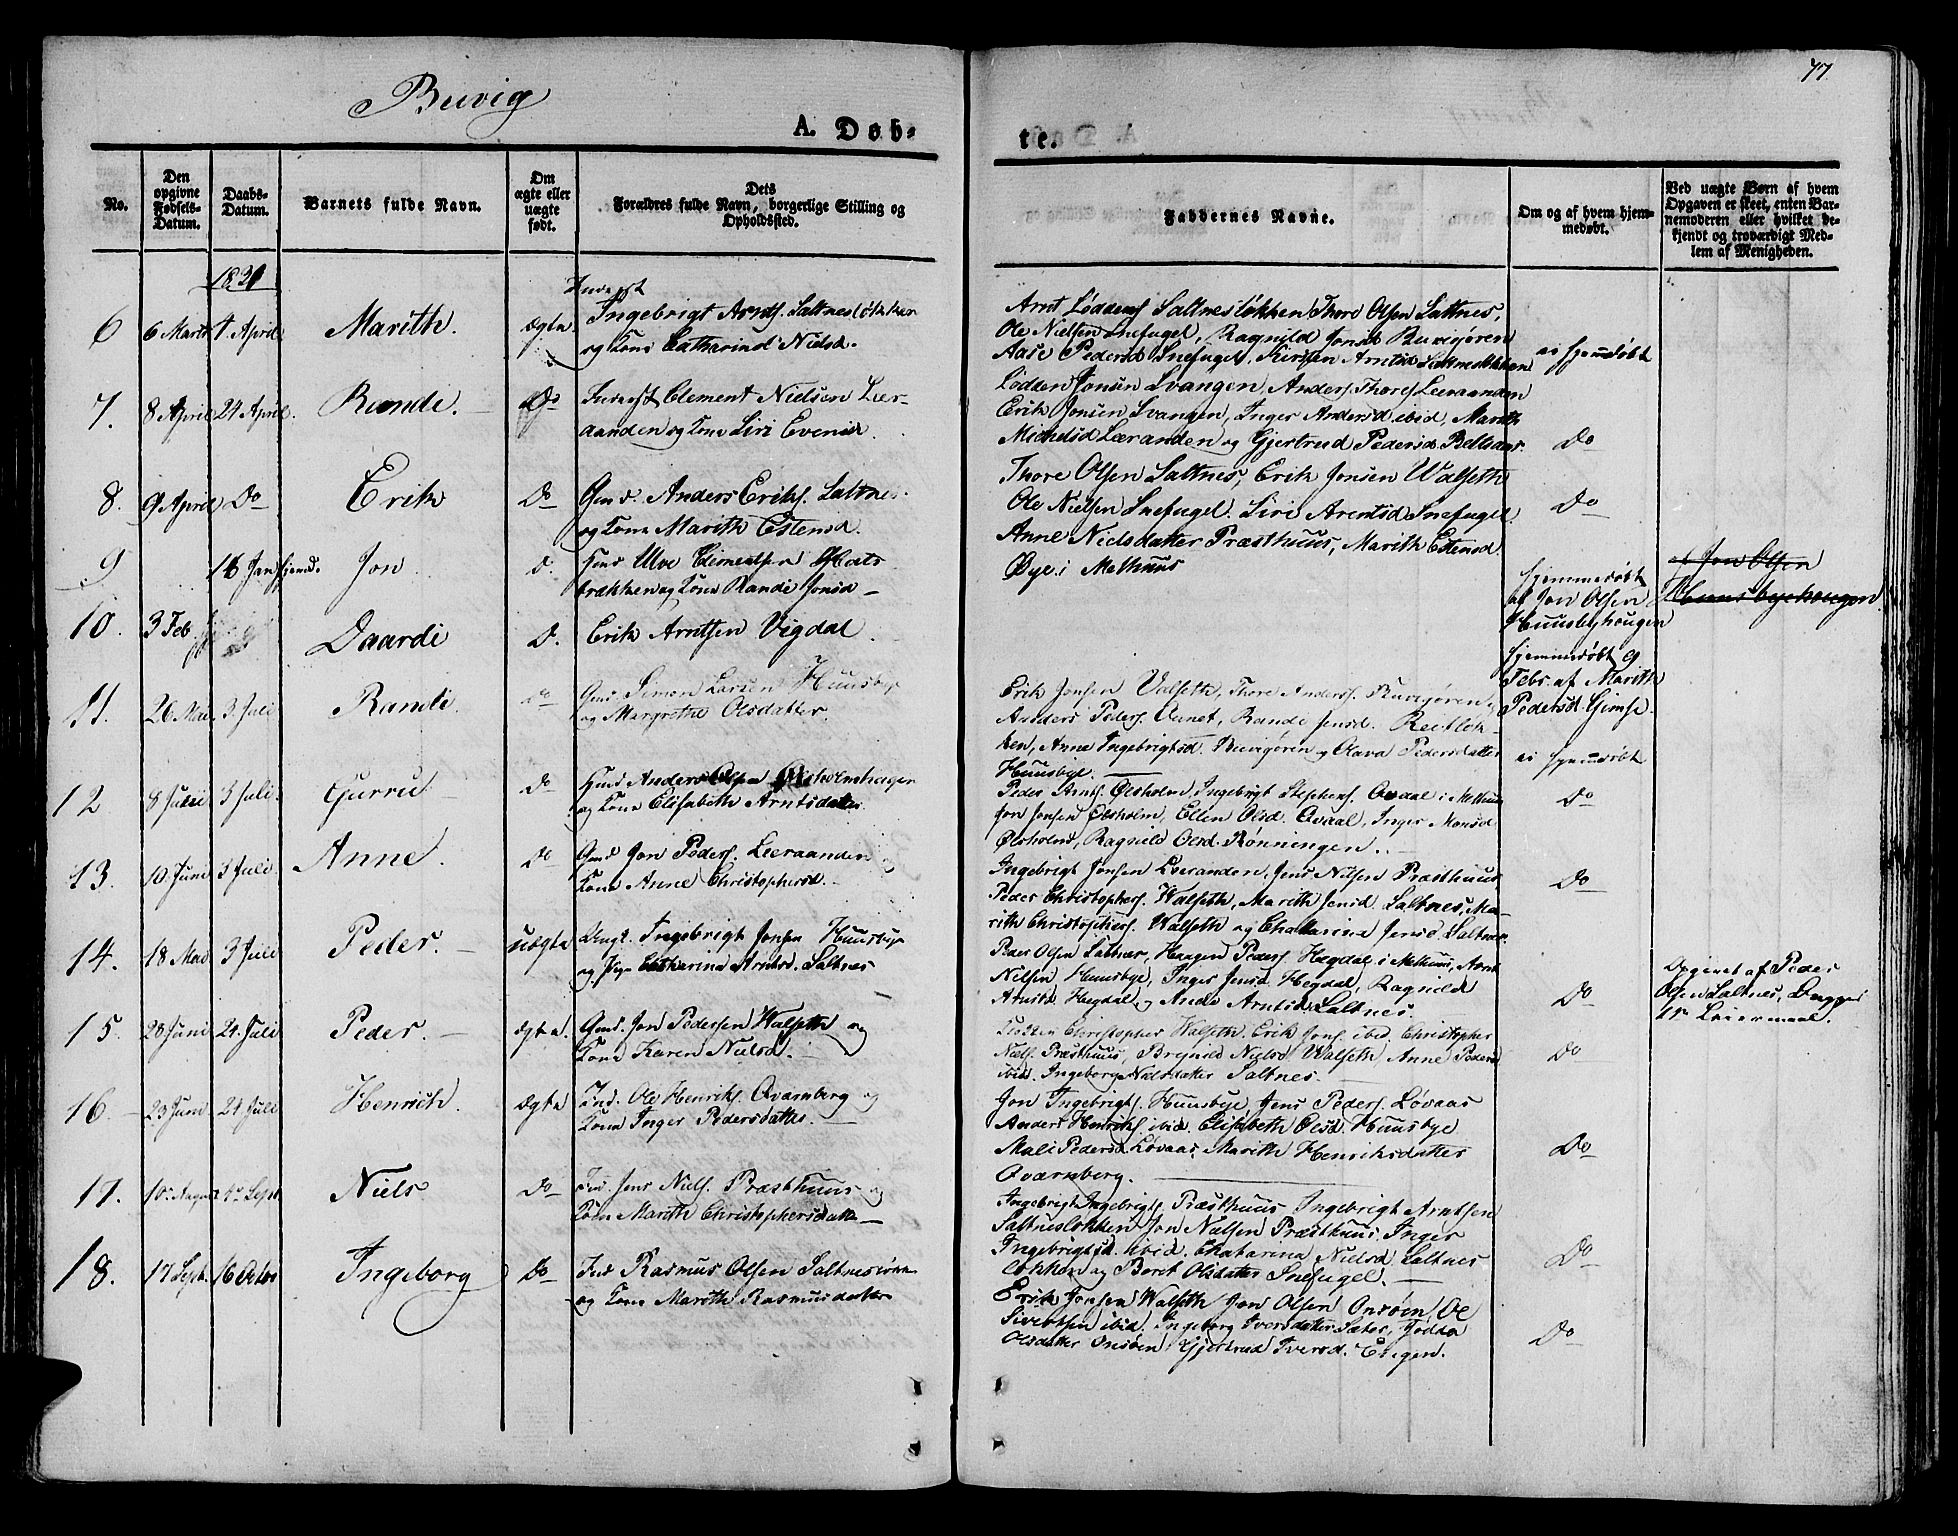 Buvig
77
A. Døb-
te.
No.
Den opgivne Fødsels-Datum.
Daabs-Datum.
Barnets fulde Navn.
Om ægte eller uægte født.
Dets Forældres fulde Navn, borgerlige Stilling og Opholdssted.
Faddernes Navne.
Om og af hvem hjem-medøbt.
Ved uægte Børn af hvem Opgaven er skeet, enten Bar-nemoderen eller hvilket be-kjendt og troværdigt Med-lem af Menigheden.
1821
6 6 Marts 1 April Marith. ægte
Ingebrigt Arnts. Saltnesløkken
og Kone Catharina Nielsd.
Arnt Loddens Saltnesløkken Thore Olsen Saltnes,
Ole Nielsen Snefugel, Ragnild Jonsd Buvigøren
Aase Pedersd Snefugel, Kirsten Arntsd Saltnesløkken
ei hjemdøbt
7. 8 April 24 April. Randi. Do
Clement Nielsen Leer-
aanden og Kone Siri Evensd.
Lodden Jonsen Svangen, Anders Thores Leeraanden
Erik Jonsen Svangen, Inger Andersd ibid, Marith
Michelsd Leeranden og Gjertrud Pedersd
Do
8. 9 April Do Erik Do
Gmd. Anders Eriks. Saltnes.
og Kone Marith Estensd.
Thore Olsen Saltnes, Erik Jonsen Walseth
Ole Nielsen Snefugel. Siri Arentsd Snefugel.
Anne Nielsdatter Præsthuus, Marith Estensd
Øye i Melhuus
Do
9 Jon D.
og Kone Randi Jonsd
hjemmedøbt
af Jon Olsen
Huusbyhougen
af Jon Olsen
Huusbyehougen
10. 3 Feb Daardi D.
Erik Arntsen Vigdal.
hjemmedøbt 9
Febr. af Marith
Pedersd. Gimse.
11. 26 Mai 3 Juli Randi. Do
Gmd Simon Larsen Huusbye
og Margrethe Olsdatter.
Erik Jonsen Valseth, Thore Anders. Buvigøren,
Anders Peders. Rande Jensd.
ken, Anne Ingebrigtsd. Buvigøren og Olava Pedersdatter
Huusbye.
ei hjemdøbt
12 8 Juni 3 Juli. Gurru Do
Hmd Anders Olsen Ølsholmhagen
og Kone Elisabeth Arntsdatter
Peder Arnts. Ølsholm, Ingebrigt Stephens. Qvaal i Melhuus
Jon Jonsen Ølsholm, Ellen Olsd. Qvaal, Inger Monsd
Ølsholm, Ragnild Olsd. Rønningen.
Do
13. 10 Juni 3 Juli Anne. Do
Gmd Jon Peders. Leeraanden og
Kone Anne Christophersd.
Ingebrigt Jonsen Leeranden, Jens Nilsen Præsthuus
Peder Christophers. Walseth, Marith Jensd Saltnes, Ma-
rith Christophers. Walseth og Chatarina Jensd. Saltnes
Do
14. 18 Mai 3 Juli Peder. uægte
Ungk. Ingebrigt Jonsen Huusbye
og Pige Catharina Arntsd. Saltnes
Peder Olsen Saltnes, Haagen Peders. Hegdal i Melhuus, Arnt
Nielsen Huusbye, Inger Jensd. Hegdal, Ragnild
Arntsd. Hegdal, og Anne Arntsd. Saltnes.
Do
Opgivet af Peder
Olsen Saltnes, Begges
1te Leiermaal.
15. 20 Juni 24 Juli Peder. ægte
Gmd. Jon Pedersen Walseth og
Kone Karen Nielsd.
Christopher Walseth, Erik Jons. ibid. Christopher
Niels. Præsthuus, Brynild Nielsd Walseth, Anne Pedersd
ibid. Ingeborg Nielsdatter Saltnes.
Do
16. 23 Juni 24 Juli Henrich. ægte
Ind. Ole Henriks. Qvarnberg og
Kone Inger Pedersdatter.
Jon Ingebrigts. Huusbye Jens Peders. Løvaas
Anders Henriks. ibid. Elisabeth Olsd. Huusbye
Mali Pedersd Løvaas, Marith Henriksdatter
Qvarnberg.
Do
17. 10 August 24 Sept Niels Do
Ind. Jens Niels. Præsthuus og
Kone Marith Christophersdatter
Ingebrigt Ingebrigts. Præsthuus Ingebrigt Arntsen
Saltnesløkken Jon Nielsen Præsthuus. Inger
Ingebrigtsd. ibid. Chatarina Nielsd. Saltnes
løkken og Beret Olsdatter Snefugel.
Do
18. 17 Sept. 16 Octor Ingeborg Do
Ind Rasmus Olsen Saltnesløkk
og Kone Marith Rasmusdatter
Erik Jonsen Walseth Jon Olsen Onsøien Ole
Sivertsen ibid. Ingeborg Iversdatter Sæter,
Olsdatter Onsøien, Gjertrud Iversd. Engen.
Do